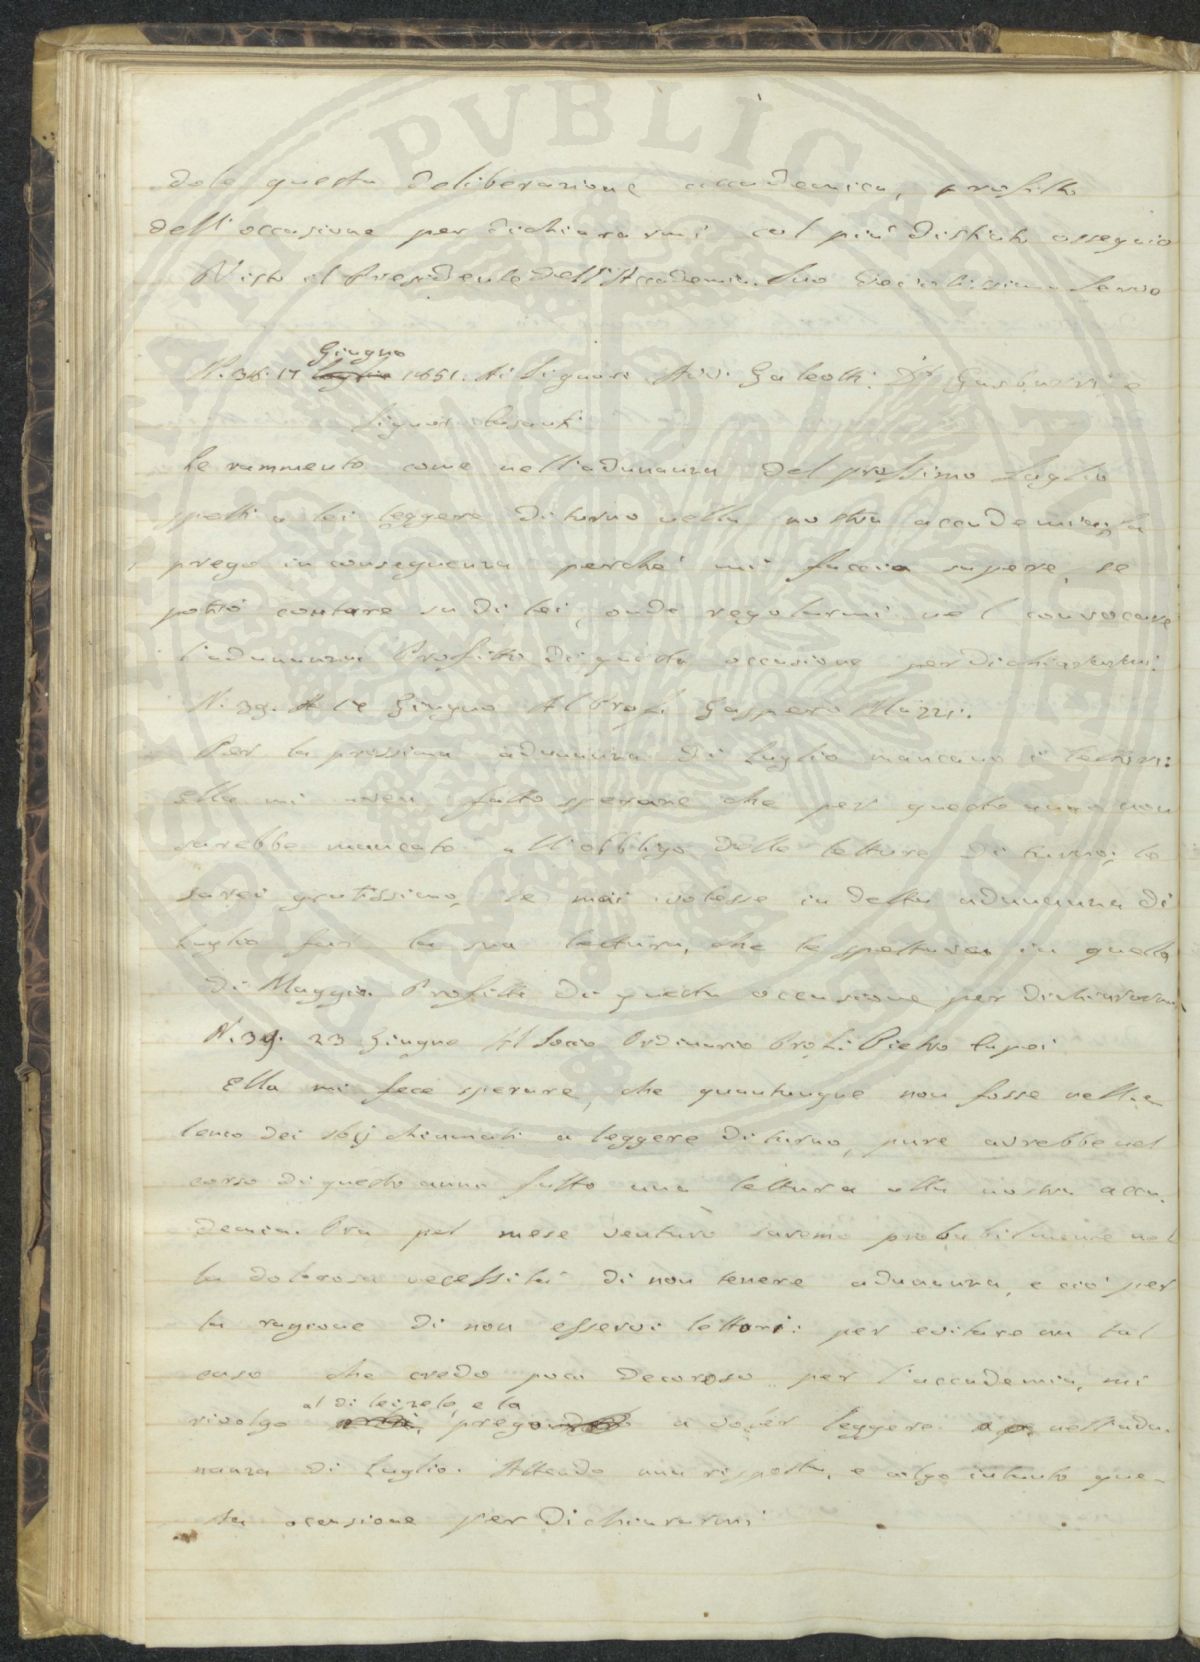 dole questa deliberazione accademica, profitto
dell'occasione per dichiararmi col piu' distinto ossequio
Visto il Presidente dell'Accademia. Suo Devotissimo Servo
Giugno
N. 38. 17 Luglio 1851. Ai Signori Avv. Galeotti. Dr. Gasbarri e
Signor Cesanti
Le rammento come nell'adunanza del prossimo Luglio
spetti a lei leggere di turno nella nostra accademia, la
prego in conseguenza perche' mi faccia sapere, se
potrò contare su di lei, onde regolarmi nel convocare
l'adunanza. Profitto di questa occasione per dichiararmi.
N. 39. A 18 Giugno Al Prof. Gaspero Mazzi.
Per la prossima adunanza di Luglio mancano i lettori:
ella mi avea fatto sperare che per questo anno non
sarebbe mancato all'obbligo delle letture di turno; le
sarei gratissimo, se mai volesse in detta adunanza di
Luglio far la sua lettura, che le spettava in quella
di Maggio. Profitto di questa occasione per dichiararmi
N. 39. 23 Giugno Al Socio Ordinario Prof. Pietro Lupoi
Ella mi fece sperare, che quantunque non fosse nell'e
lenco dei socj chiamati a leggere di turno, pure avrebbe nel
corso di questo anno fatto una lettura alla nostra acca-
demia. Ora pel mese venturo saremo probabilmente nel
la dolorosa necessita' di non tenere adunanza, e cio' per
la ragione di non esservi lettori: per evitare un tal
caso che credo poco decoroso per l'accademia, mi
al di lei zelo, e la
rivolgo prego a voler leggere nell'adu-
nanza di Luglio. Attendo una risposta, e colgo intanto que-
sta occasione per dichiararmi
PVBLICAE